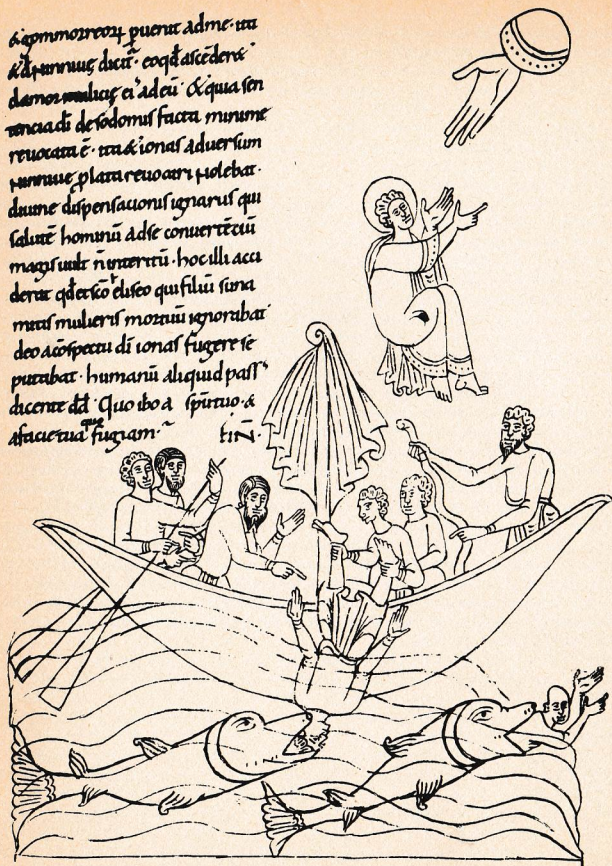 & gommorreoꝝ puenit adme · ita
& d̄ ninniuę dicit̃ · eoqd̄ ascēdere
clamor malicię ei᾽ ad eū · & quia sen
tencia dī de sodomis facta minime
reuocata ē · ita & ionas aduersum
ninniuę plata reuocari nolebat ·
diuine dispensacionis ignarus qui
salutē hominū ad se conuertēciū
magis uult n̄ interitū · hoc illi acci
derat qd̄ et scō eliseo qui filiū suna
mitis mulieris mortuū ignorabat
deo a cōspectu dī ionas fugere se
putabat · humanū aliquid pass᾽
dicente dd̄ · Quo ibo a spūtuo · &
afacie tua quo fugiam ·